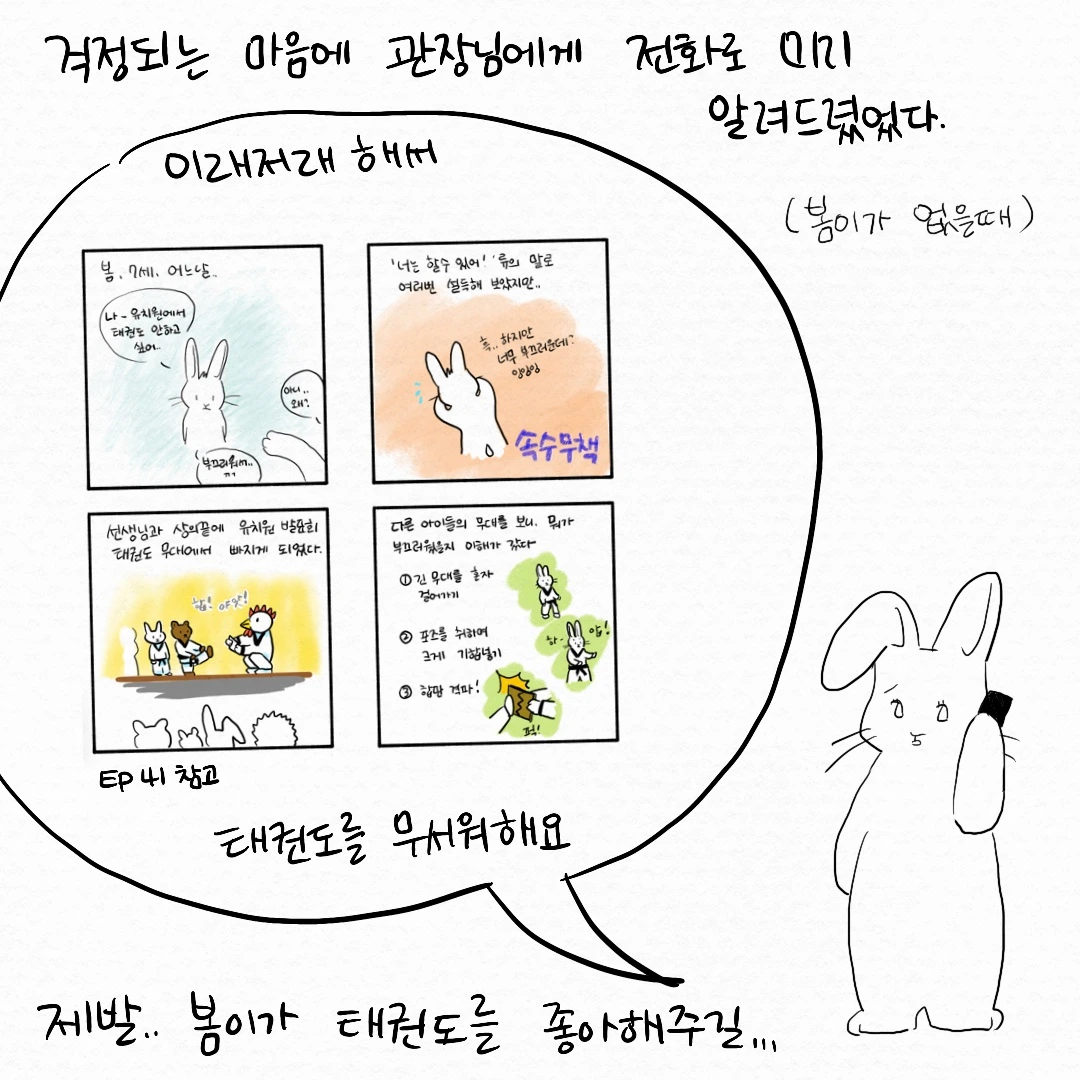 걱정되는 마음에 관장님에게 전화로 미리
알려드렸었다.
(봄이가 없을때)
이래저래 해서
봄, 7세, 어느날..
나- 유치원에서
태권도 안하고
싶어..
아니..
왜?
부끄러워서..
ㄲㄲ
'너는 할수 있어!' 류의 말로
여러번 설득해 보았지만..
흑.. 하지만
너무 부끄러운데?
잉잉잉
속수무책
선생님과 상의끝에 유치원 발표회
태권도 무대에서 빠지게 되었다.
합! 야앗!
다른 아이들의 무대를 보니, 뭐가
부끄러웠을지 이해가 갔다
① 긴 무대를 혼자
걸어가기
② 포즈를 취하며
크게 기합넣기
하- 압!
③ 합판 격파!
퍽!
EP 41 참고
태권도를 무서워해요
제발.. 봄이가 태권도를 좋아해주길...